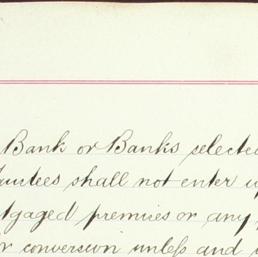 Bank or Banks selecte
antees shall not enter u
tgaged premises or any
r conversion unless and